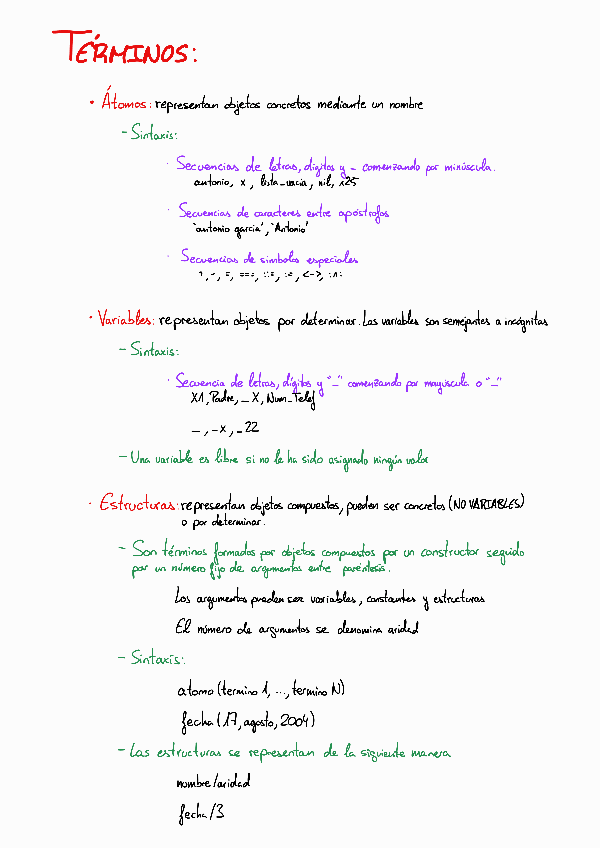 TÉRMINOS:
· Átomos: representan objetos concretos mediante un nombre
- Sintaxis:
· Secuencias de letras, dígitos y - comenzando por minúscula.
antonio, x, lista_vacia, nil, x25
· Secuencias de caracteres entre apóstrofos
'antonio garcia', 'Antonio'
· Secuencias de simbolos especiales
· Variables: representan objetos por determinar. Las variables son semejantes a incógnitas
- Sintaxis:
· Secuencia de letras, dígitos y "_" comenzando por mayúscula o "_"
X1, Padre, _X, Num_Telef
_, -x, _22
- Una variable es libre si no le ha sido asignado ningún valor
· Estructuras: representan objetos compuestos, pueden ser concretos (NO VARIABLES)
o por determinar.
- Son términos formados por objetos compuestos por un constructor seguido
por un número fijo de argumentos entre paréntesis.
Los argumentos pueden ser variables, constantes y estructuras
El número de argumentos se denomina aridad
- Sintaxis:
atomo (termino 1, ..., termino N)
fecha (17, agosto, 2004)
- Las estructuras se representan de la siguiente manera
nombre/aridad
fecha/3